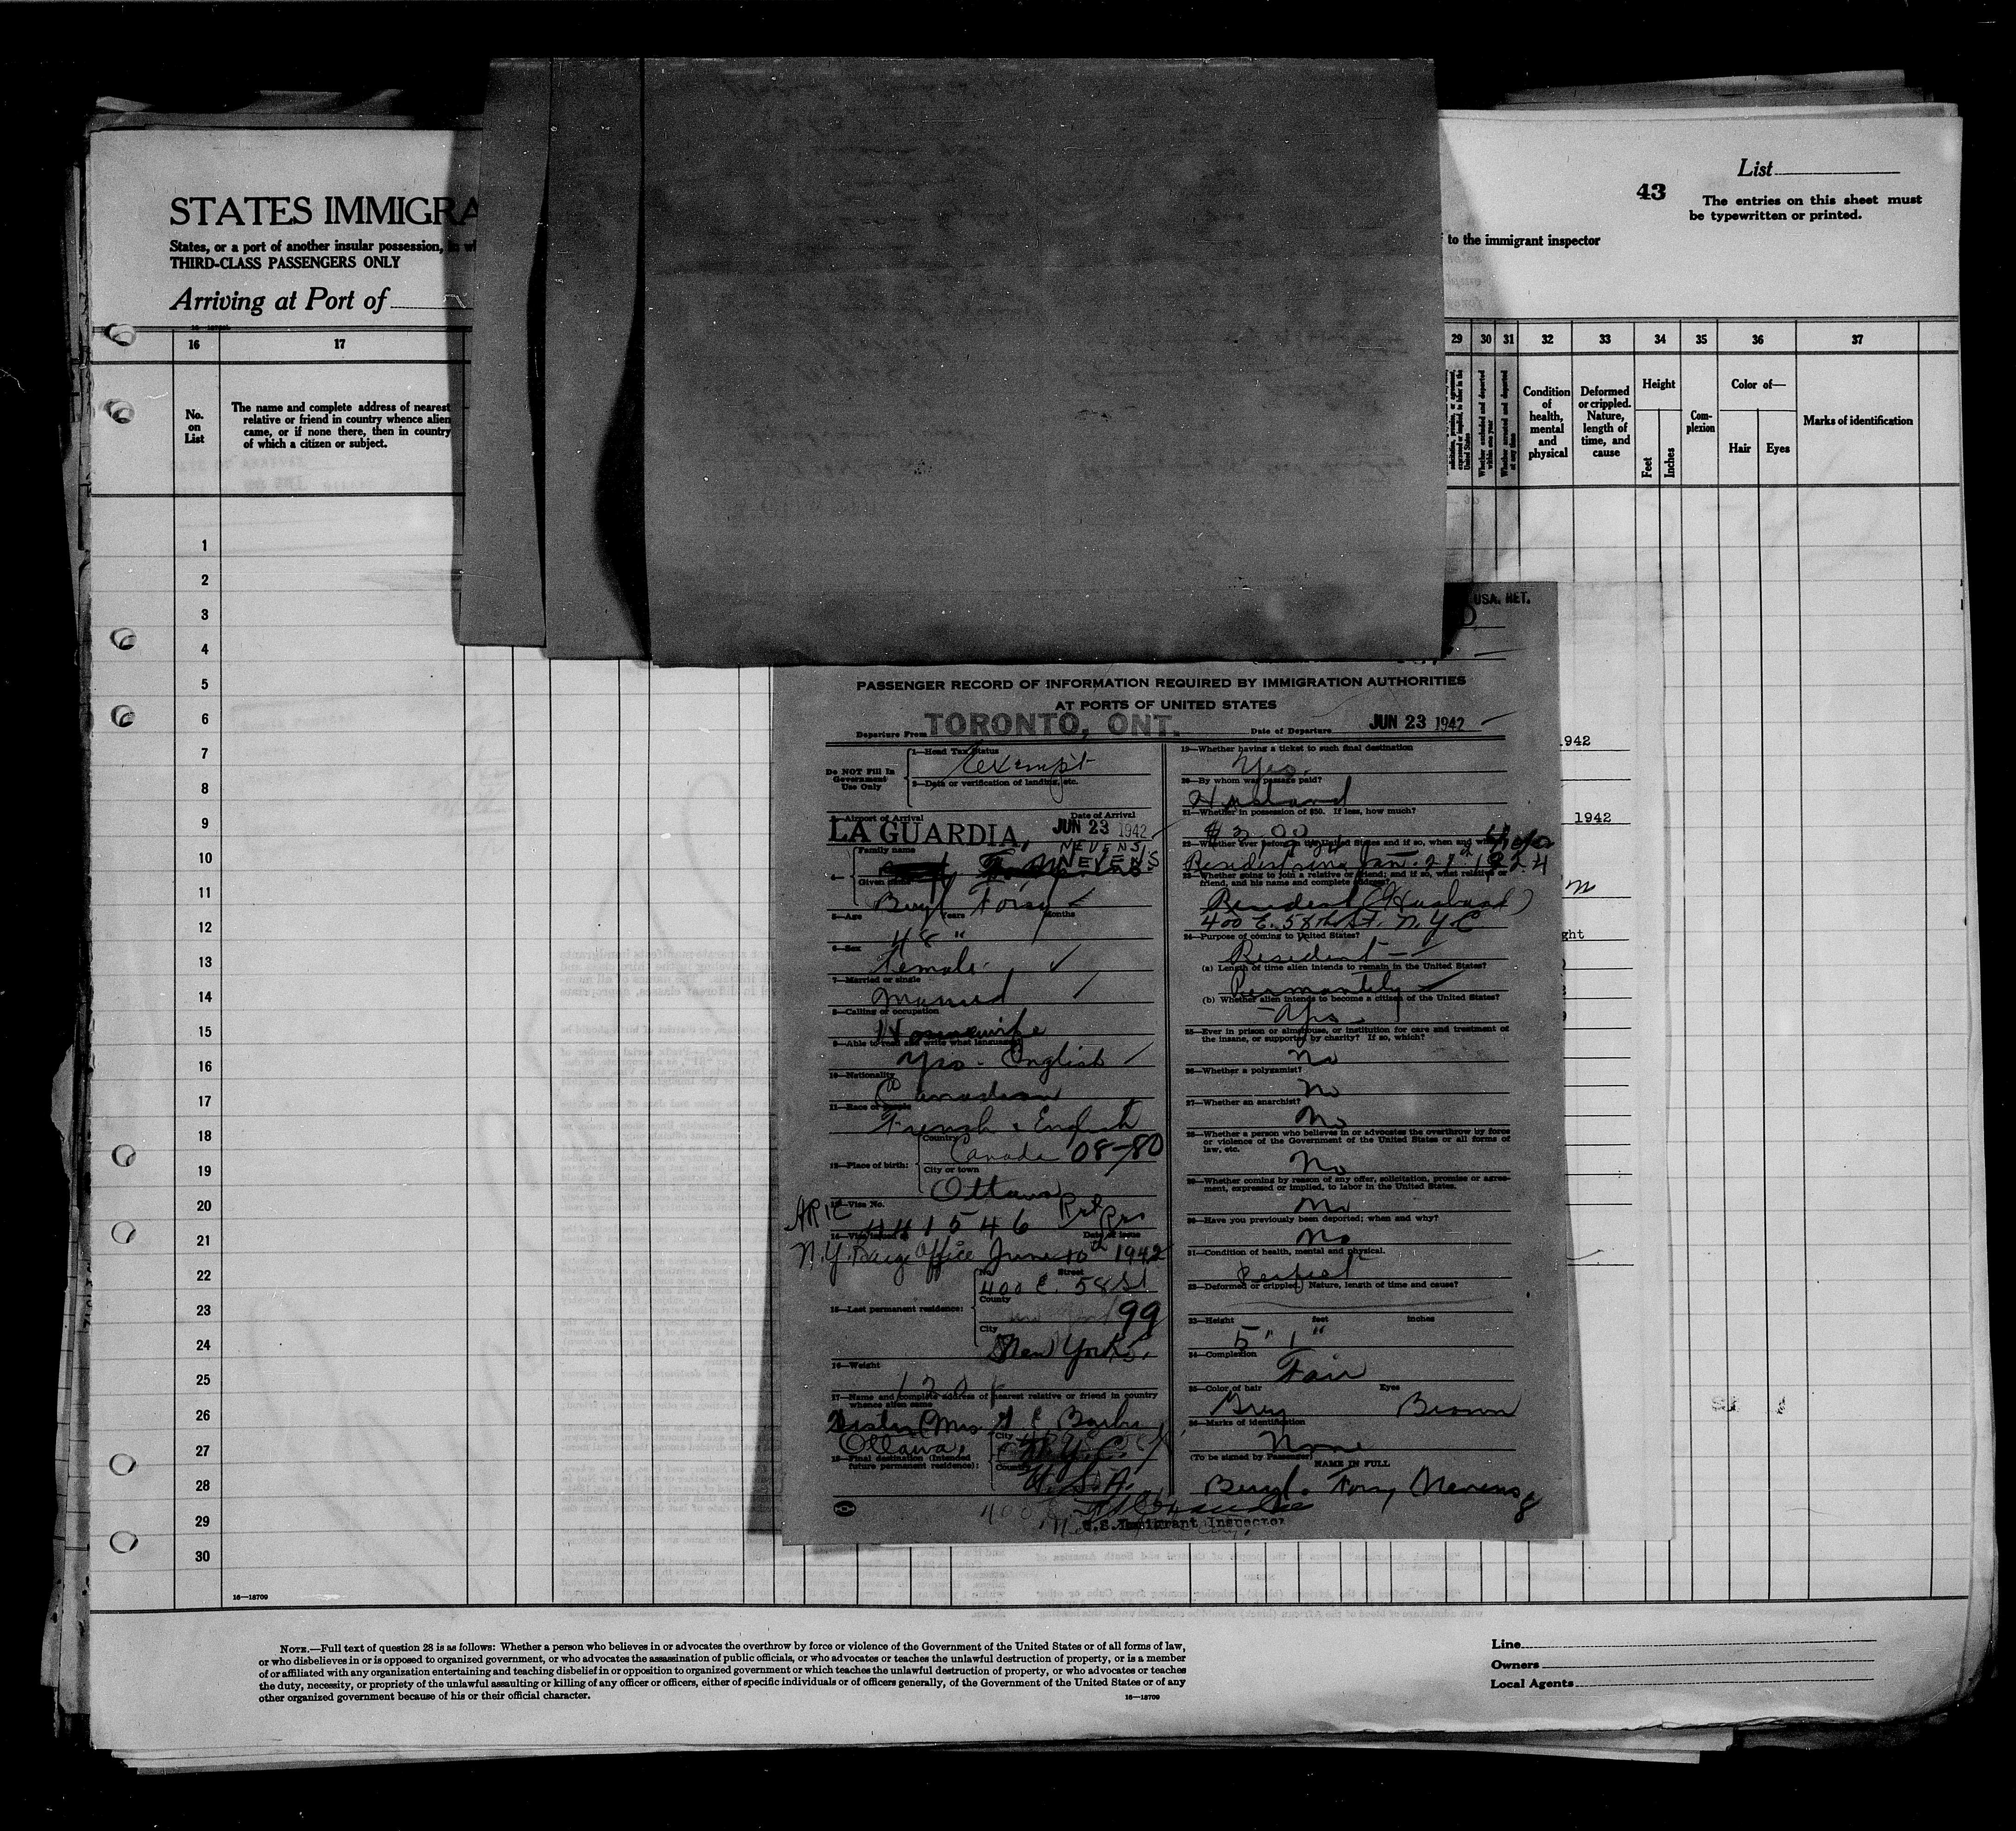 List
43
The entries on this sheet must
be typewritten or printed.
STATES IMMIGRA
States, or a port of another insular possession, in wh
to the immigrant inspector
THIRD-CLASS PASSENGERS ONLY
Arriving at Port of
16 17 29 30 31 32 33 34 35 36 37
No.
on
List
The name and complete address of nearest
relative or friend in country whence alien
came, or if none there, then in country
of which a citizen or subject.
solicitation, promise, or agreement,
expressed or implied, to labor in the
United States
Whether excluded and deported
within one year
Whether arrested and deported
at any time
Condition
of
health,
mental
and
physical
Deformed
or crippled.
Nature,
length of
time, and
cause
Height
Feet
Inches
Com-
plexion
Color of—
Hair
Eyes
Marks of identification
1
2
3
4
5
6
7
8
9
10
11
12
13
14
15
16
17
18
19
20
21
22
23
24
25
26
27
28
29
30
USA. RET.
PASSENGER RECORD OF INFORMATION REQUIRED BY IMMIGRATION AUTHORITIES
AT PORTS OF UNITED STATES
Departure From TORONTO, ONT. Date of Departure JUN 23 1942
Do NOT Fill In
Government
Use Only
1—Head Tax Status
Exempt
2—Data or verification of landing, etc.
3—Airport of Arrival Date of Arrival
LA GUARDIA, JUN 23 1942
4— Family name
NEVENS
NEVENS
Given name
Beryl Forsy
5—Age Years Months
48 "
6—Sex
Female
7—Married or single
Married
8—Calling or occupation
Housewife
9—Able to read and write what language
Yes - English
10—Nationality
Canadian
11—Race or people
French & English
12—Place of birth:
Country
Canada 08-80
City or town
Ottawa
13—Visa No.
441546
14—Visa issued at Date of Issue
N.Y. Office June 10th 1942
15—Last permanent residence:
No. Street
400 E. 58 St
County
99
City
New York
16—Weight
120
17—Name and complete address of nearest relative or friend in country
whence alien came
Sister (Mrs
Ottawa,
18—Final destination (Intended
future permanent residence):
City
N.Y.C.
Country
U.S.A.
U.S. Immigrant Inspector
19—Whether having a ticket to such final destination
Yes.
20—By whom was passage paid?
Husband
21—Whether in possession of $50. If less, how much?
22—Whether ever before in the United States and if so, when and where?
Resident since Jan. 1924
23—Whether going to join a relative or friend; and if so, what relative or
friend, and his name and complete address?
Resident (Husband)
400 E. 58th St. N.Y.C.
24—Purpose of coming to United States?
Resident
(a) Length of time alien intends to remain in the United States?
Permanently
(b) Whether alien intends to become a citizen of the United States?
Yes
25—Ever in prison or almshouse, or institution for care and treatment of
the insane, or supported by charity? If so, which?
No
26—Whether a polygamist?
No
27—Whether an anarchist?
No
28—Whether a person who believes in or advocates the overthrow by force
or violence of the Government of the United States or all forms of
law, etc.
No
29—Whether coming by reason of any offer, solicitation, promise or agree-
ment, expressed or implied, to labor in the United States.
No
30—Have you previously been deported; when and why?
No
31—Condition of health, mental and physical.
Perfect
32—Deformed or crippled. Nature, length of time and cause?
33—Height feet inches
5" 1"
34—Complexion
Fair
35—Color of hair Eyes
Grey Brown
36—Marks of identification
None
(To be signed by Passenger) NAME IN FULL
Beryl Forsy Nevens
1942
1942
ght
16—18709
NOTE.—Full text of question 28 is as follows: Whether a person who believes in or advocates the overthrow by force or violence of the Government of the United States or of all forms of law,
or who disbelieves in or is opposed to organized government, or who advocates the assassination of public officials, or who advocates or teaches the unlawful destruction of property, or is a member
of or affiliated with any organization entertaining and teaching disbelief in or opposition to organized government or which teaches the unlawful destruction of property, or who advocates or teaches
the duty, necessity, or propriety of the unlawful assaulting or killing of any officer or officers, either of specific individuals or of officers generally, of the Government of the United States or of any
other organized government because of his or their official character.
16—18709
Line
Owners
Local Agents